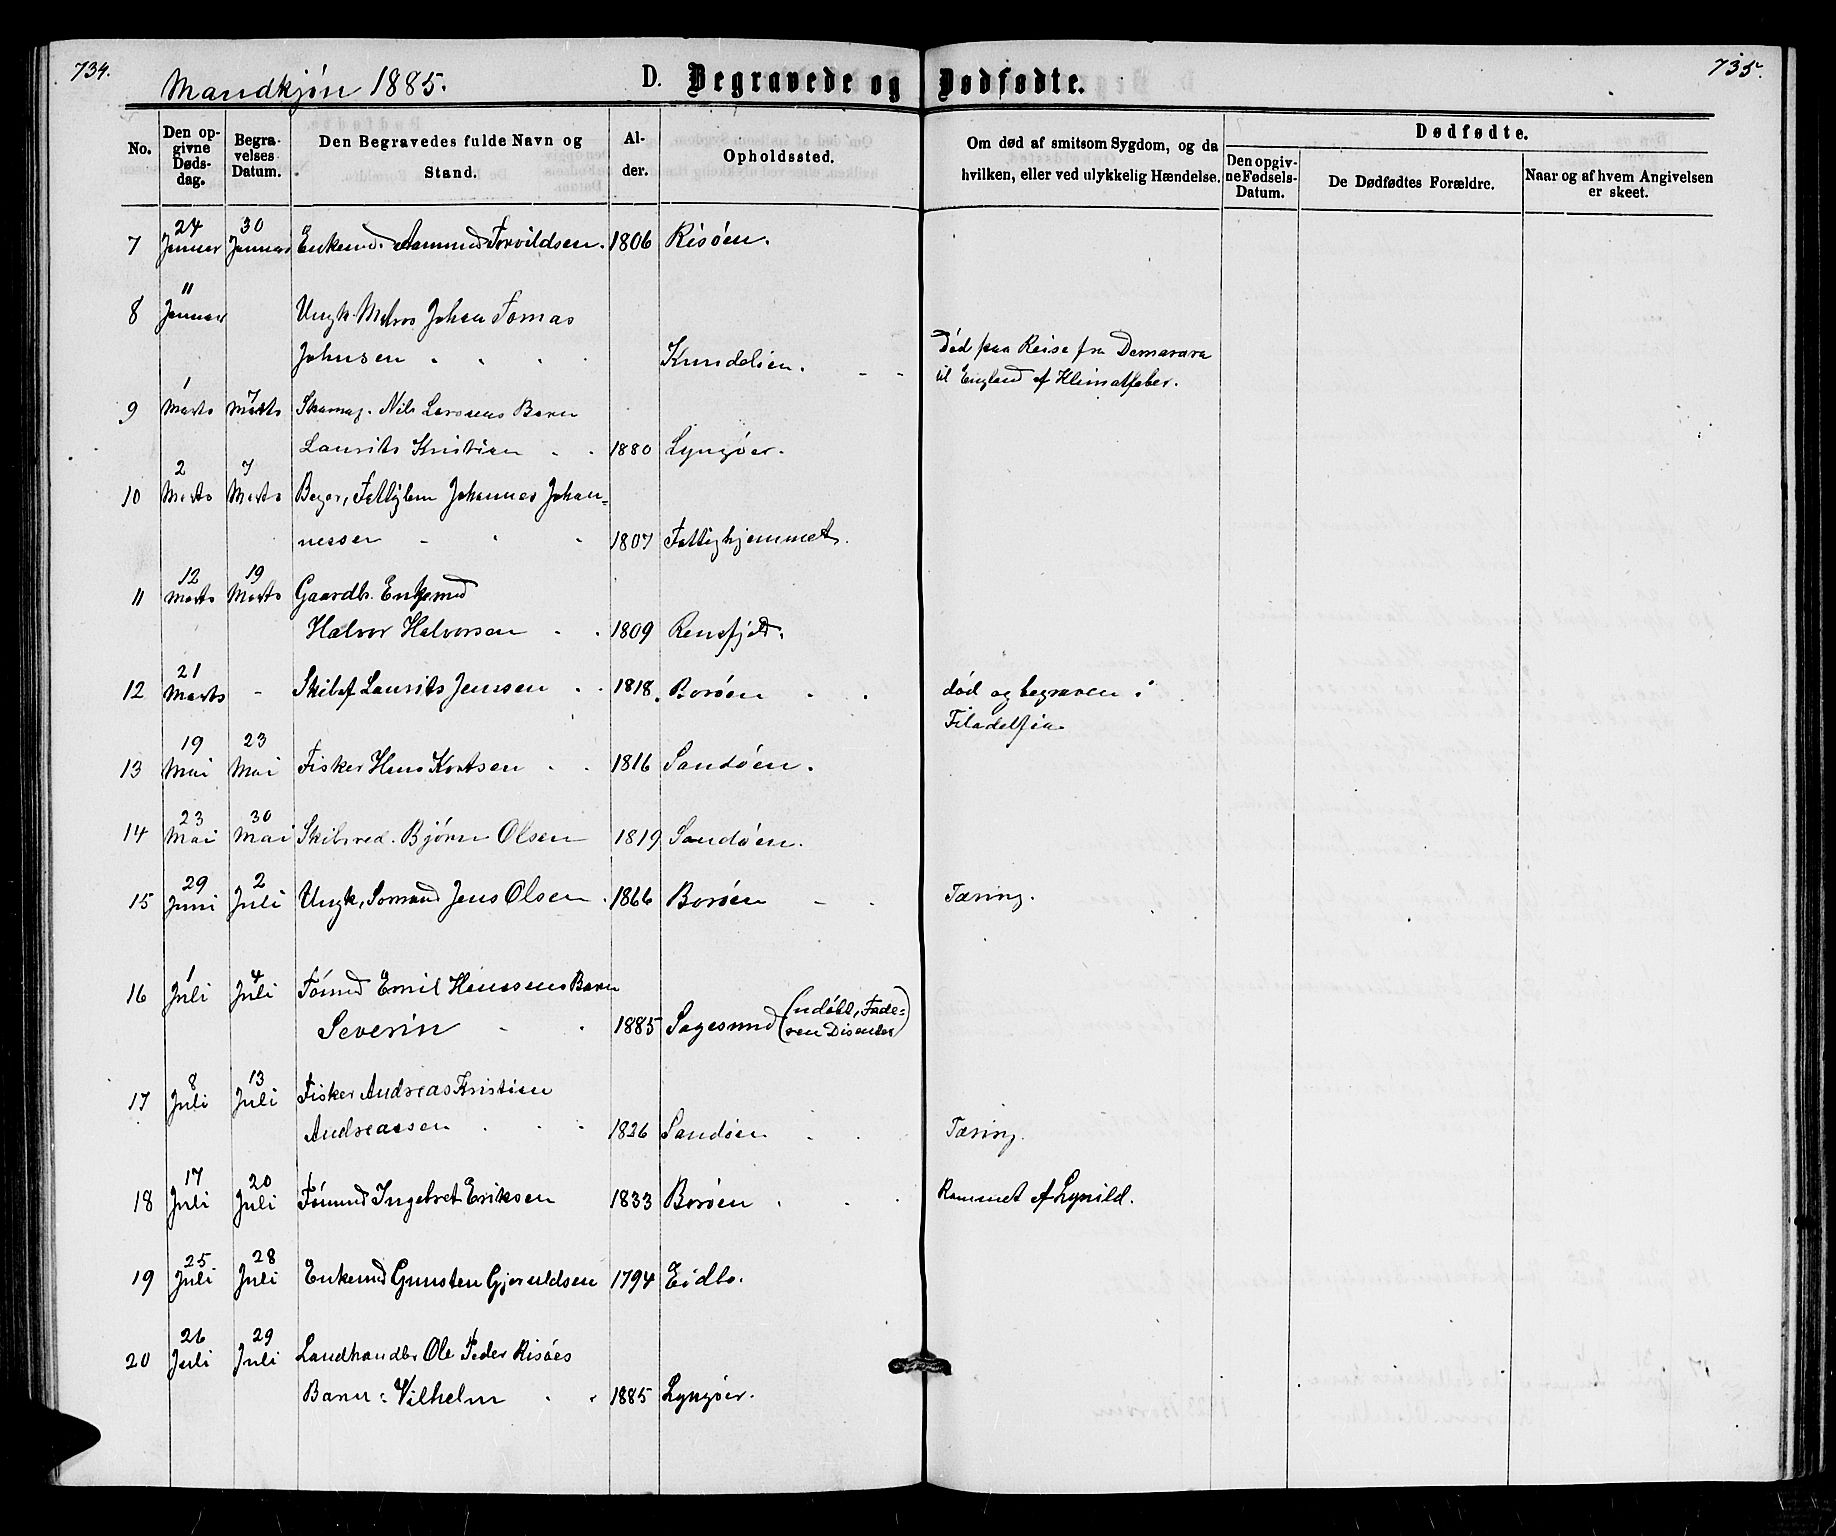 734.
Mandkjøn 1885.
D. Begravede og Dødfødte.
735.
No.
Den opgivne Dødsdag.
Begravelses Datum.
Den Begravedes fulde Navn og Stand.
Alder.
Opholdssted.
Om død af smitsom Sygdom, og da hvilken, eller ved ulykkelig Hændelse.
Dødfødte.
Den opgivne Fødsels-Datum.
De Dødfødtes Forældre.
Naar og af hvem Angivelsen er skeet.
24 30
7 Januar Januar Enkemd. Aamund Torvildsen. 1806 Risøen.
11
8 Januar Ungk. Matros Johan Tomas
Johnsen Død paa Reise fra Demarara
til England af Klimatfeber.
1 7
9 Marts Marts Nils Larsens Barn
Laurits Kristian 1880 Lyngøer.
2 7
10 Marts Marts Johannes Johan=
nessen 1807 Fattighjemmet.
12 19
11 Marts Marts Gaardbr. Enkemd
Halvor Halvorsen 1809
21
12 Marts - Skibsf Laurits Jensen 1818. Borøen død og begraven i
Filadelfia
19 23
13 Mai Mai Fisker Hans Kortsen 1816 Sandøen.
23 30
14 Mai Mai Skibsred. Bjørn Olsen 1819 Sandøen.
29 2
15 Juni Juli Ungk, Sømand Jens Olsen 1866 Borøen Tæring.
1 4
16 Juli Juli Tømd Emil Hansens Barn
Severin 1885 Sagesund (udøbt, Fade=
ren Disenter)
8 13
17 Juli Juli Fisker Andreas Kristian
Andreassen 1826 Sandøen Tæring.
17 20
18 Juli Juli Tømmd Ingebret Eriksen 1833 Borøen Rammet af Lynild.
25 28
19 Juli Juli Enkemd Gunsten Gjeruldsen 1794 Eidbo.
26 29
20 Juli Juli Landhandlr Ole Peder Risøes
Barn: Vilhelm 1885 Lyngøer.